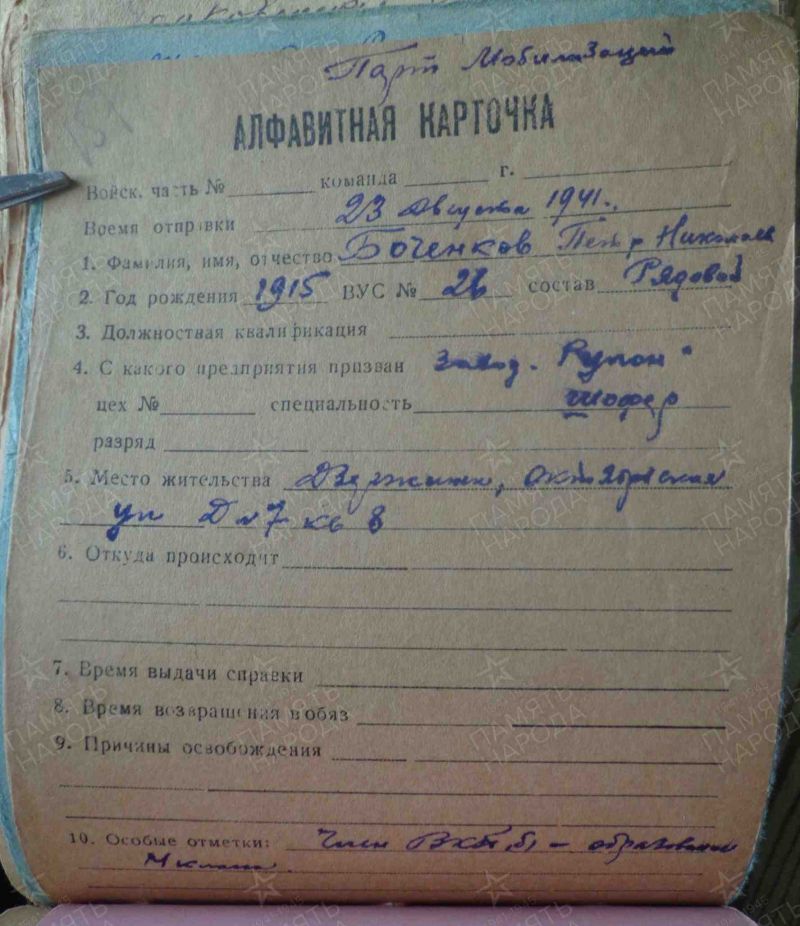 Парт Мобилизаций
АЛФАВИТНАЯ КАРТОЧКА
Войск. часть № команда г.
Время отправки 23 Августа 1941 г.
1. Фамилия, имя, отчество Боченков Петр Николаев
2. Год рождения 1915 ВУС № 26 состав Рядовой
3. Должностная квалификация
4. С какого предприятия призван Завод "Рулон"
цех № специальность шофер
разряд
5. Место жительства Дзержинск, Октябрьская
ул Д № 7 кв 8
6. Откуда происходит
7. Время выдачи справки
8. Время возвращения в обяз
9. Причины освобождения
10. Особые отметки: Член ВКП(б) – образование
класса.
ПАМЯТЬ НАРОДА